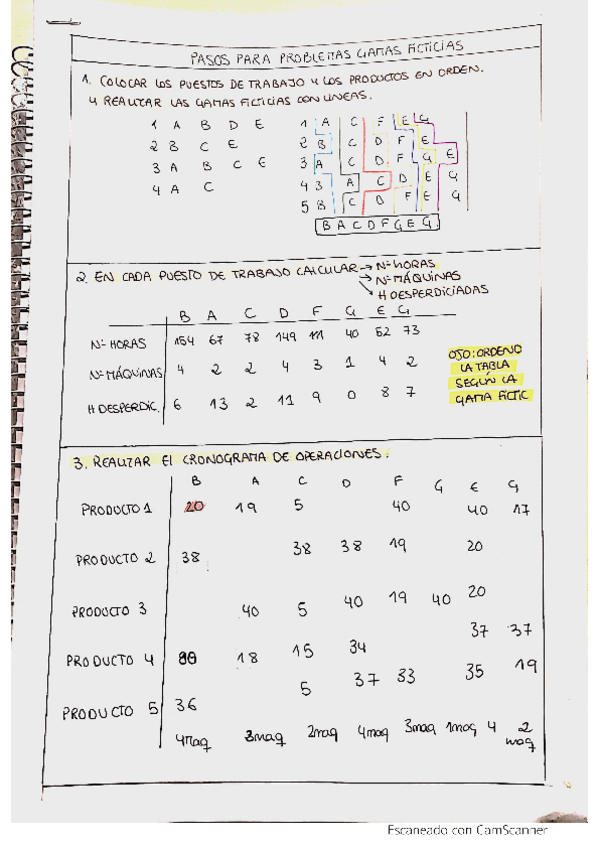 PASOS PARA PROBLEMAS GAMAS FICTICIAS
1. COLOCAR LOS PUESTOS DE TRABAJO Y LOS PRODUCTOS EN ORDEN.
Y REALIZAR LAS GAMAS FICTICIAS CON LINEAS.
1 A B D E
2 B C E
3 A B C E
4 A C
1 A C F E G
2 B C D F E
3 A C D F G E
4 B A C D E G
5 B C D F E G
B A C D F G E G
2. EN CADA PUESTO DE TRABAJO CALCULAR → Nº HORAS
→ Nº MÁQUINAS
→ H DESPERDICIADAS
B A C D F G E G
Nº HORAS 154 67 78 149 111 40 52 73
Nº MÁQUINAS 4 2 2 4 3 1 4 2
H DESPERDIC. 6 13 2 11 9 0 8 7
OJO: ORDENO
LA TABLA
SEGÚN LA
GAMA FICTIC
3. REALIZAR El CRONOGRAMA DE OPERACIONES.
B A C D F G E G
PRODUCTO 1 20 19 5 40 40 17
PRODUCTO 2 38 38 38 19 20
PRODUCTO 3 40 5 40 19 40 20
PRODUCTO 4 18 15 34 37 37
PRODUCTO 5 36 5 37 33 35 19
4maq 3maq 2maq 4maq 3maq 1maq 4 2 maq
Escaneado con CamScanner